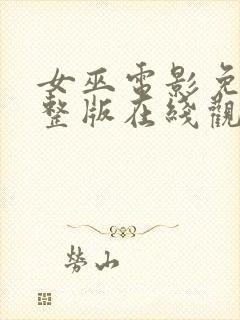 女巫電影免
整版在綫觀
勞山